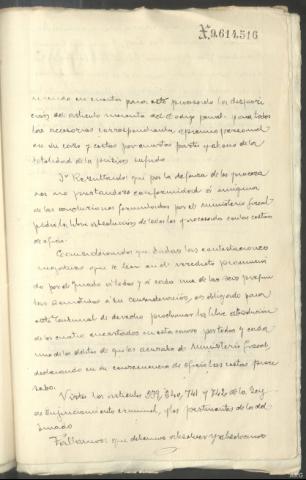 X.9.614.516
niendo en cuenta para este procesado las disposi-
ción del artículo noventa del Código penal para todos
las accesorias correspondientes, apremio personal
en su caso y costas por cuartas partes y abono de la
totalidad de la prisión sufrida
3º Resultando: que por la defensa de los procesa-
dos no prestándose conformidad á ninguna
de las conclusiones formuladas por el ministerio fiscal
pidió la libre absolución de todos los procesados con las costas
de oficio.
Considerando: que dadas las contestaciones
negativas que se leen en el veredicto pronuncia-
do por el Jurado á todas y á cada una de las seis pregun-
tas sometidas á su consideración, es obligado para
este Tribunal de derecho proclamar la libre absolución
de los cuatro encartados en esta causa por todos y cada
uno de los delitos de que les acusaba el Ministerio fiscal,
declarando en su consecuencia de oficio las costas proce-
sales.
Vistos los artículos 239, 240, 741 y 742 de la Ley
de Enjuiciamiento criminal, y los pertinentes de la del
Jurado
Fallamos: que debemos absolver y absolvemos